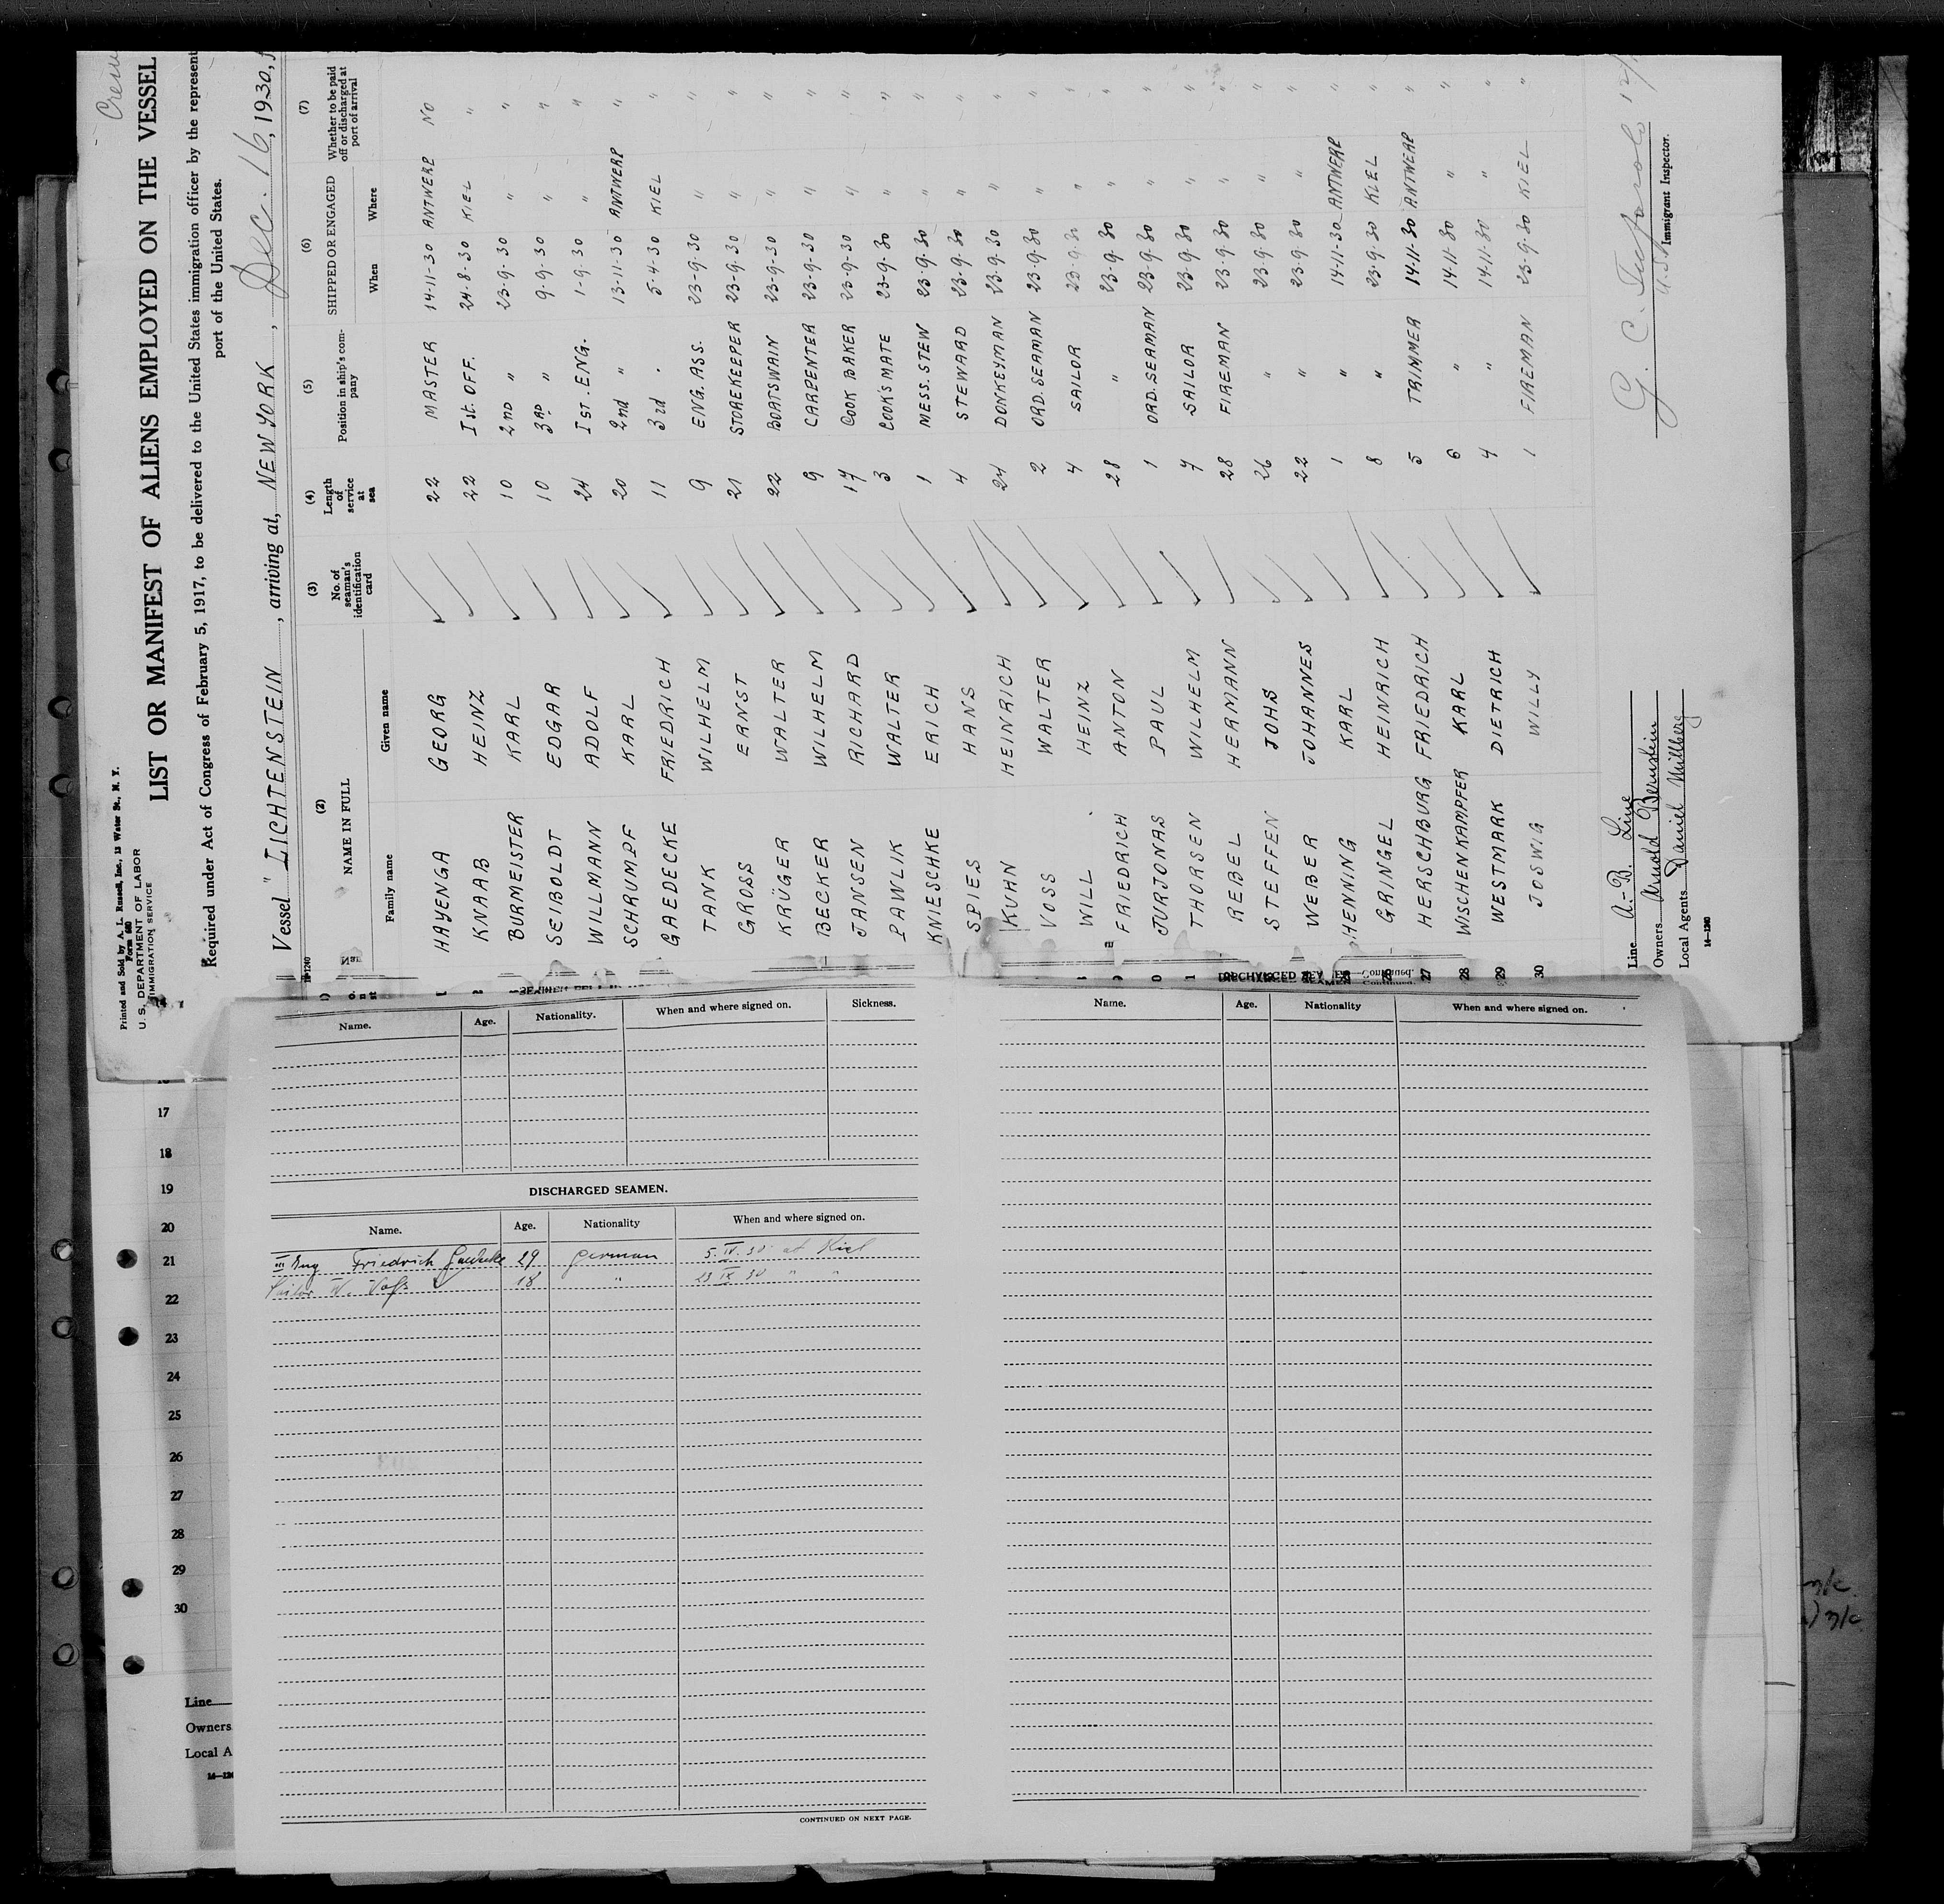 Crew
Printed and Sold by A. L. Russell, Inc., 13 Water St., N. Y.
Form 680
U. S. DEPARTMENT OF LABOR
IMMIGRATION SERVICE
LIST OR MANIFEST OF ALIENS EMPLOYED ON THE VESSEL
Required under Act of Congress of February 5, 1917, to be delivered to the United States immigration officer by the represent
port of the United States.
Vessel "LICHTENSTEIN, arriving at, NEW YORK, Dec. 16, 1930, f
(2) (3) (4) (5) (6) (7)
NAME IN FULL No. of seaman's identification card Length of service at sea Position in ship's company SHIPPED OR ENGAGED Whether to be paid off or discharged at port of arrival
Family name Given name When Where
HAYENGA GEORG 22 MASTER 14-11-30 ANTWERP NO
KNAAB HEINZ 22 Ist. OFF. 24-8-30 KIEL "
BURMEISTER KARL 10 2ND " 23-9-30 " "
SEIBOLDT EDGAR 10 3RD " 9-9-30 " "
WILLMANN ADOLF 24 IST. ENG. 1-9-30 " "
SCHRUMPF KARL 20 2nd " 13-11-30 ANTWERP "
GAEDECKE FRIEDRICH 11 3rd . 5-4-30 KIEL "
TANK WILHELM 9 ENG. ASS. 23-9-30 " "
GROSS ERNST 21 STOREKEEPER 23-9-30 " "
KRÜGER WALTER 22 BOATSWAIN 23-9-30 " "
BECKER WILHELM 9 CARPENTER 23-9-30 " "
JANSEN RICHARD 17 COOK BAKER 23-9-30 " "
PAWLIK WALTER 3 COOK'S MATE 23-9-30 " "
KNIESCHKE ERICH 1 MESS. STEW 23-9-30 " "
SPIES HANS 4 STEWARD 23-9-30 " "
KUHN HEINRICH 24 DONKEYMAN 23-9-30 " "
VOSS WALTER 2 ORD. SEAMAN 23-9-30 " "
WILL HEINZ 4 SAILOR 23-9-30 " "
FRIEDRICH ANTON 28 " 23-9-30 " "
JURJONAS PAUL 1 ORD. SEAMAN 23-9-30 " "
THORSEN WILHELM 7 SAILOR 23-9-30 " "
REBEL HERMANN 28 FIREMAN 23-9-30 " "
STEFFEN JOHS 26 " 23-9-30 " "
WEBER JOHANNES 22 " 23-9-30 " "
HENNING KARL 1 " 14-11-30 ANTWERP "
GRINGEL HEINRICH 8 " 23-9-30 KIEL "
27 HERSCHBURG FRIEDRICH 5 TRIMMER 14-11-30 ANTWERP "
28 WISCHENKAMPFER KARL 6 " 14-11-30 " "
29 WESTMARK DIETRICH 4 " 14-11-30 " "
30 JOSWIG WILLY 1 FIREMAN 23-9-30 KIEL "
Line A.-B. Line
Owners Arnold Bernstein
Local Agents Daniel Millberg
14-1240
G. C.
Immigrant Inspector.
Name. Age. Nationality. When and where signed on. Sickness.
DISCHARGED SEAMEN.
Name. Age. Nationality When and where signed on.
III Eng Friedrich Gaedecke 29 german 5. IV. 30 at Kiel
Sailor W. Voss 18 " 23 IX 30 " "
CONTINUED ON NEXT PAGE.
Name. Age. Nationality When and where signed on.
17
18
19
20
21
22
23
24
25
26
27
28
29
30
Line
Owners
Local A